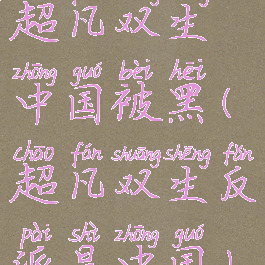 超凡双生
zhōng guó bèi hēi
中国被黑(
chāo fán shuāng shēng fǎn
超凡双生反
pài shì zhōng guó
派是中国)